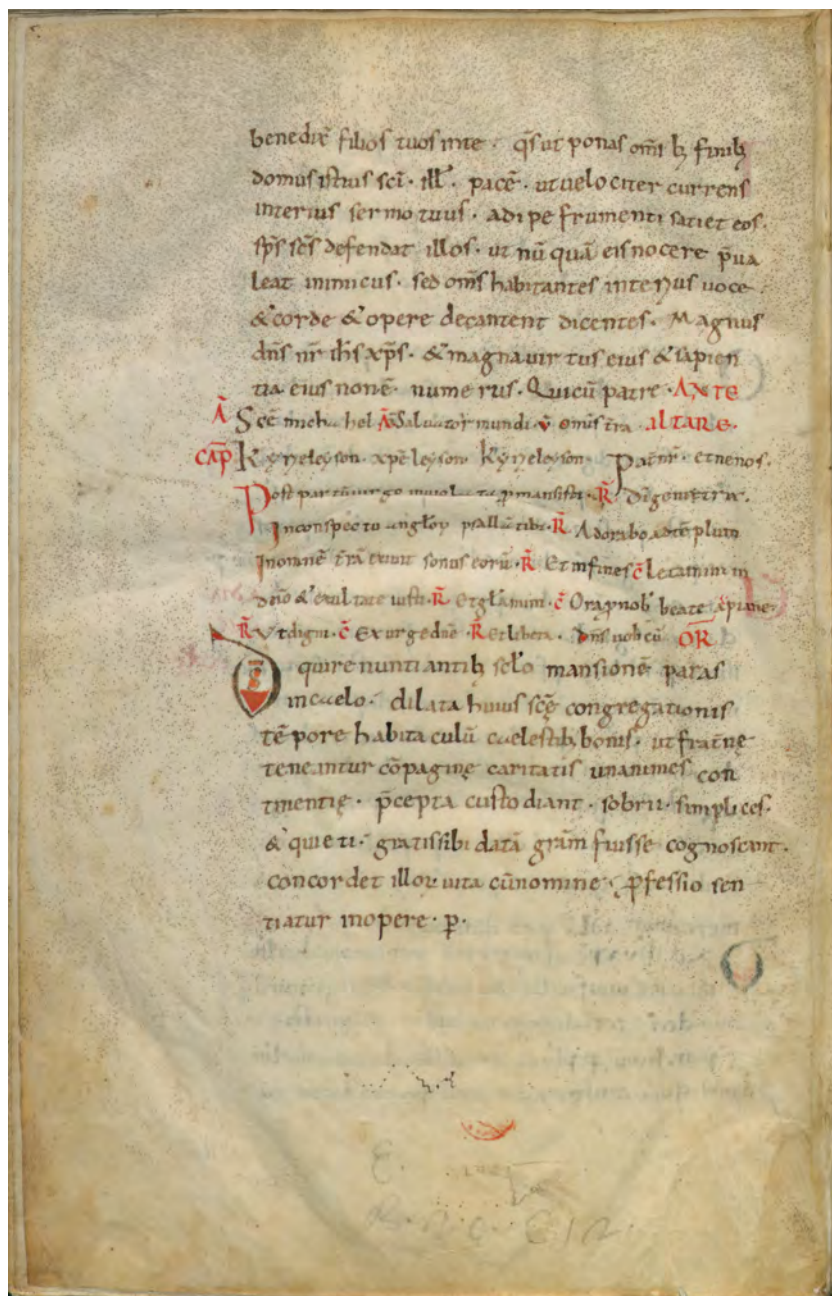 benedix̄ filios tuos inte · q̄s ut ponas om̄i bꝫ finibꝫ
domus istius sc̄i · ill̄ · pacē · ut uelociter currens
interius sermo tuus · adipe frumenti satiet eos ·
sp̄s sc̄s defendat illos · ut nū quā eis nocere p̄ua
leat inimicus · sed om̄s habitantes interius uoce ·
& corde & opere decantent dicentes · Magnus
dn̄s nr̄ ih̄s xp̄s · & magna uirtus eius & sapien
tia eius non ē · numerus · Qui cū patre · ANTE
Ā Sc̄e michahel Ā Saluator mundi · v̄ om̄is t̄ra · ALTARE ·
CAP̄ Kyrieleyson · xp̄eleyson Kyrieleyson · Pat̄ nr̄ · et ne nos ·
Post partū uirgo inuiolata p̄mansisti · R̄ Dī genetrix ·
In conspectu anglorū psallā tibi · R̄ Adorabo ad tē plum
In omnē t̄rā exiuit sonus eorū · R̄ Et in fines c̄ Letamini in
dn̄o & exultate iusti · R̄ Et gl̄amini · c̄ Ora p nob̄ beate
R̄ Ut digni · c̄ Exurge dn̄e R̄ Et libera · Dn̄s uobcū OR̄
D̄s qui renuntiantibꝫ sclo mansionē paras
in caelo · dilata huius sc̄ę congregationis
tē pore habitaculū caelestibꝫ bonis · ut frat̄nę
teneantur cōpagine caritatis unanimes con
tinentię · p̄cepta custodiant · sobrii · simplices ·
& quieti · gratis sibi datā grām fuisse cognoscant ·
concordet illoꝝ uita cū nomine · ꝓfessio sen
tiatur in opere · p̄ ·